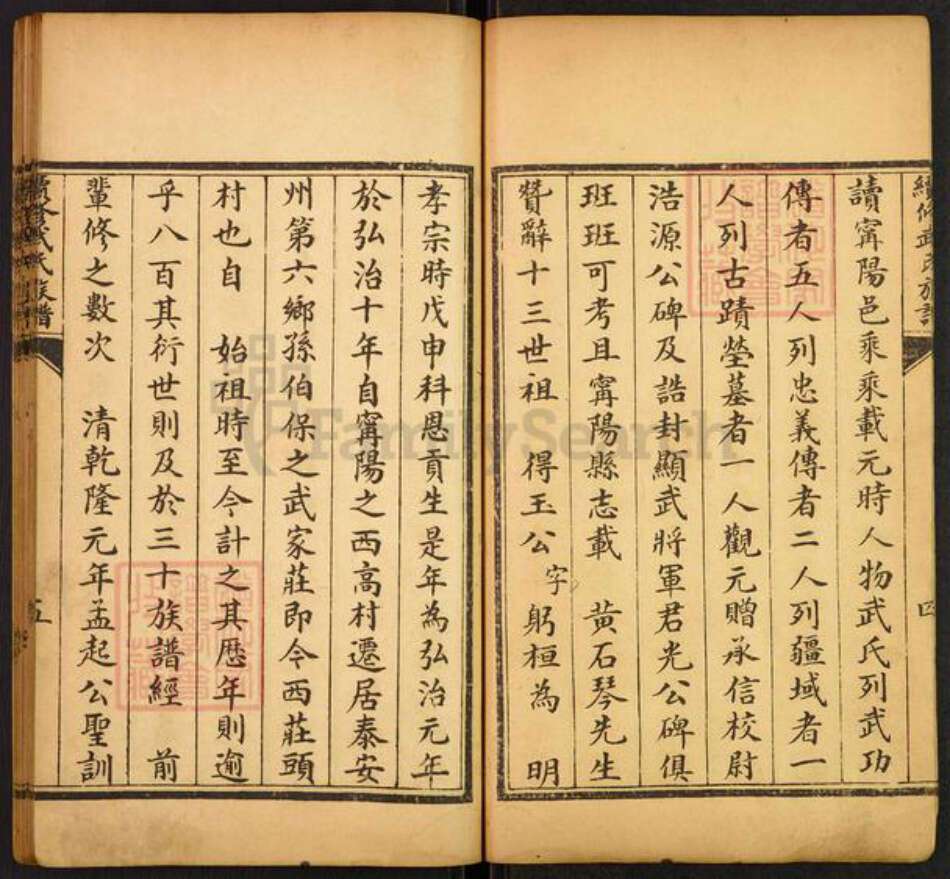 續修武氏族譜
四
讀甯陽邑乘乘載元時人物武氏列武功
傳者五人列忠義傳者二人列疆域者一
人列古蹟塋墓者一人觀元贈承信校尉
浩源公碑及誥封顯武將軍君光公碑俱
班班可考且甯陽縣志載 黃石琴先生
贊辭十三世祖 得玉公 字 躬桓為 明
孝宗時戊申科恩貢生是年為弘治元年
於弘治十年自甯陽之西高村遷居泰安
州第六鄉孫伯保之武家莊即今西莊頭
村也自 始祖時至今計之其歷年則逾
乎八百其衍世則及於三十族譜經 前
輩修之數次 清乾隆元年孟起公聖訓
續修武氏族譜
五
FamilySearch